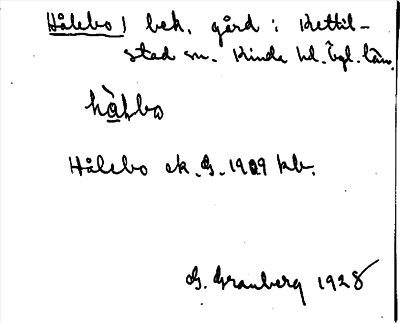 Hålebo, bek. gård i Kettil-
stad sn. Kinda hd. Ögl. län.
hàlbo
Hålebo ek. G. 1909 kb.
G. Granberg 1928